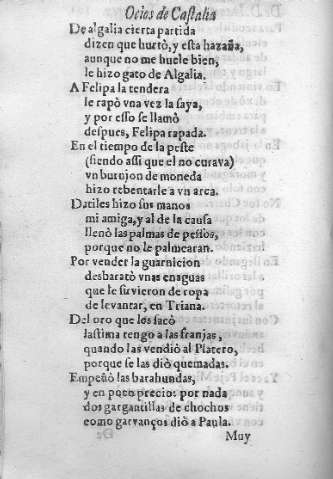 Ocios de Castalia
De algalia cierta partida
dizen que hurtò, y esta hazaña,
aunque no me huele bien,
le hizo gato de Algalia.
A Felipa la tendera
le rapò vna vez la saya,
y por esso se llamò
despues, Felipa rapada.
En el tiempo de la peste
(siendo assi que el no curava)
vn burujon de moneda
hizo rebentarle a vn arca.
Datiles hizo sus manos
mi amiga, y al de la causa
llenò las palmas de pessos,
porque no le palmearan.
Por vender la guarnicion
desbaratò vnas enaguas
que le sirvieron de ropa
de levantar, en Triana.
Del oro que los sacò
lastima tengo a las franjas,
quando las vendiò al Platero,
porque se las diò quemadas.
Empeñò las barahundas,
y en poco precio: por nada
dos gargantillas de chochos
como garvanços diò a Paula.
Muy